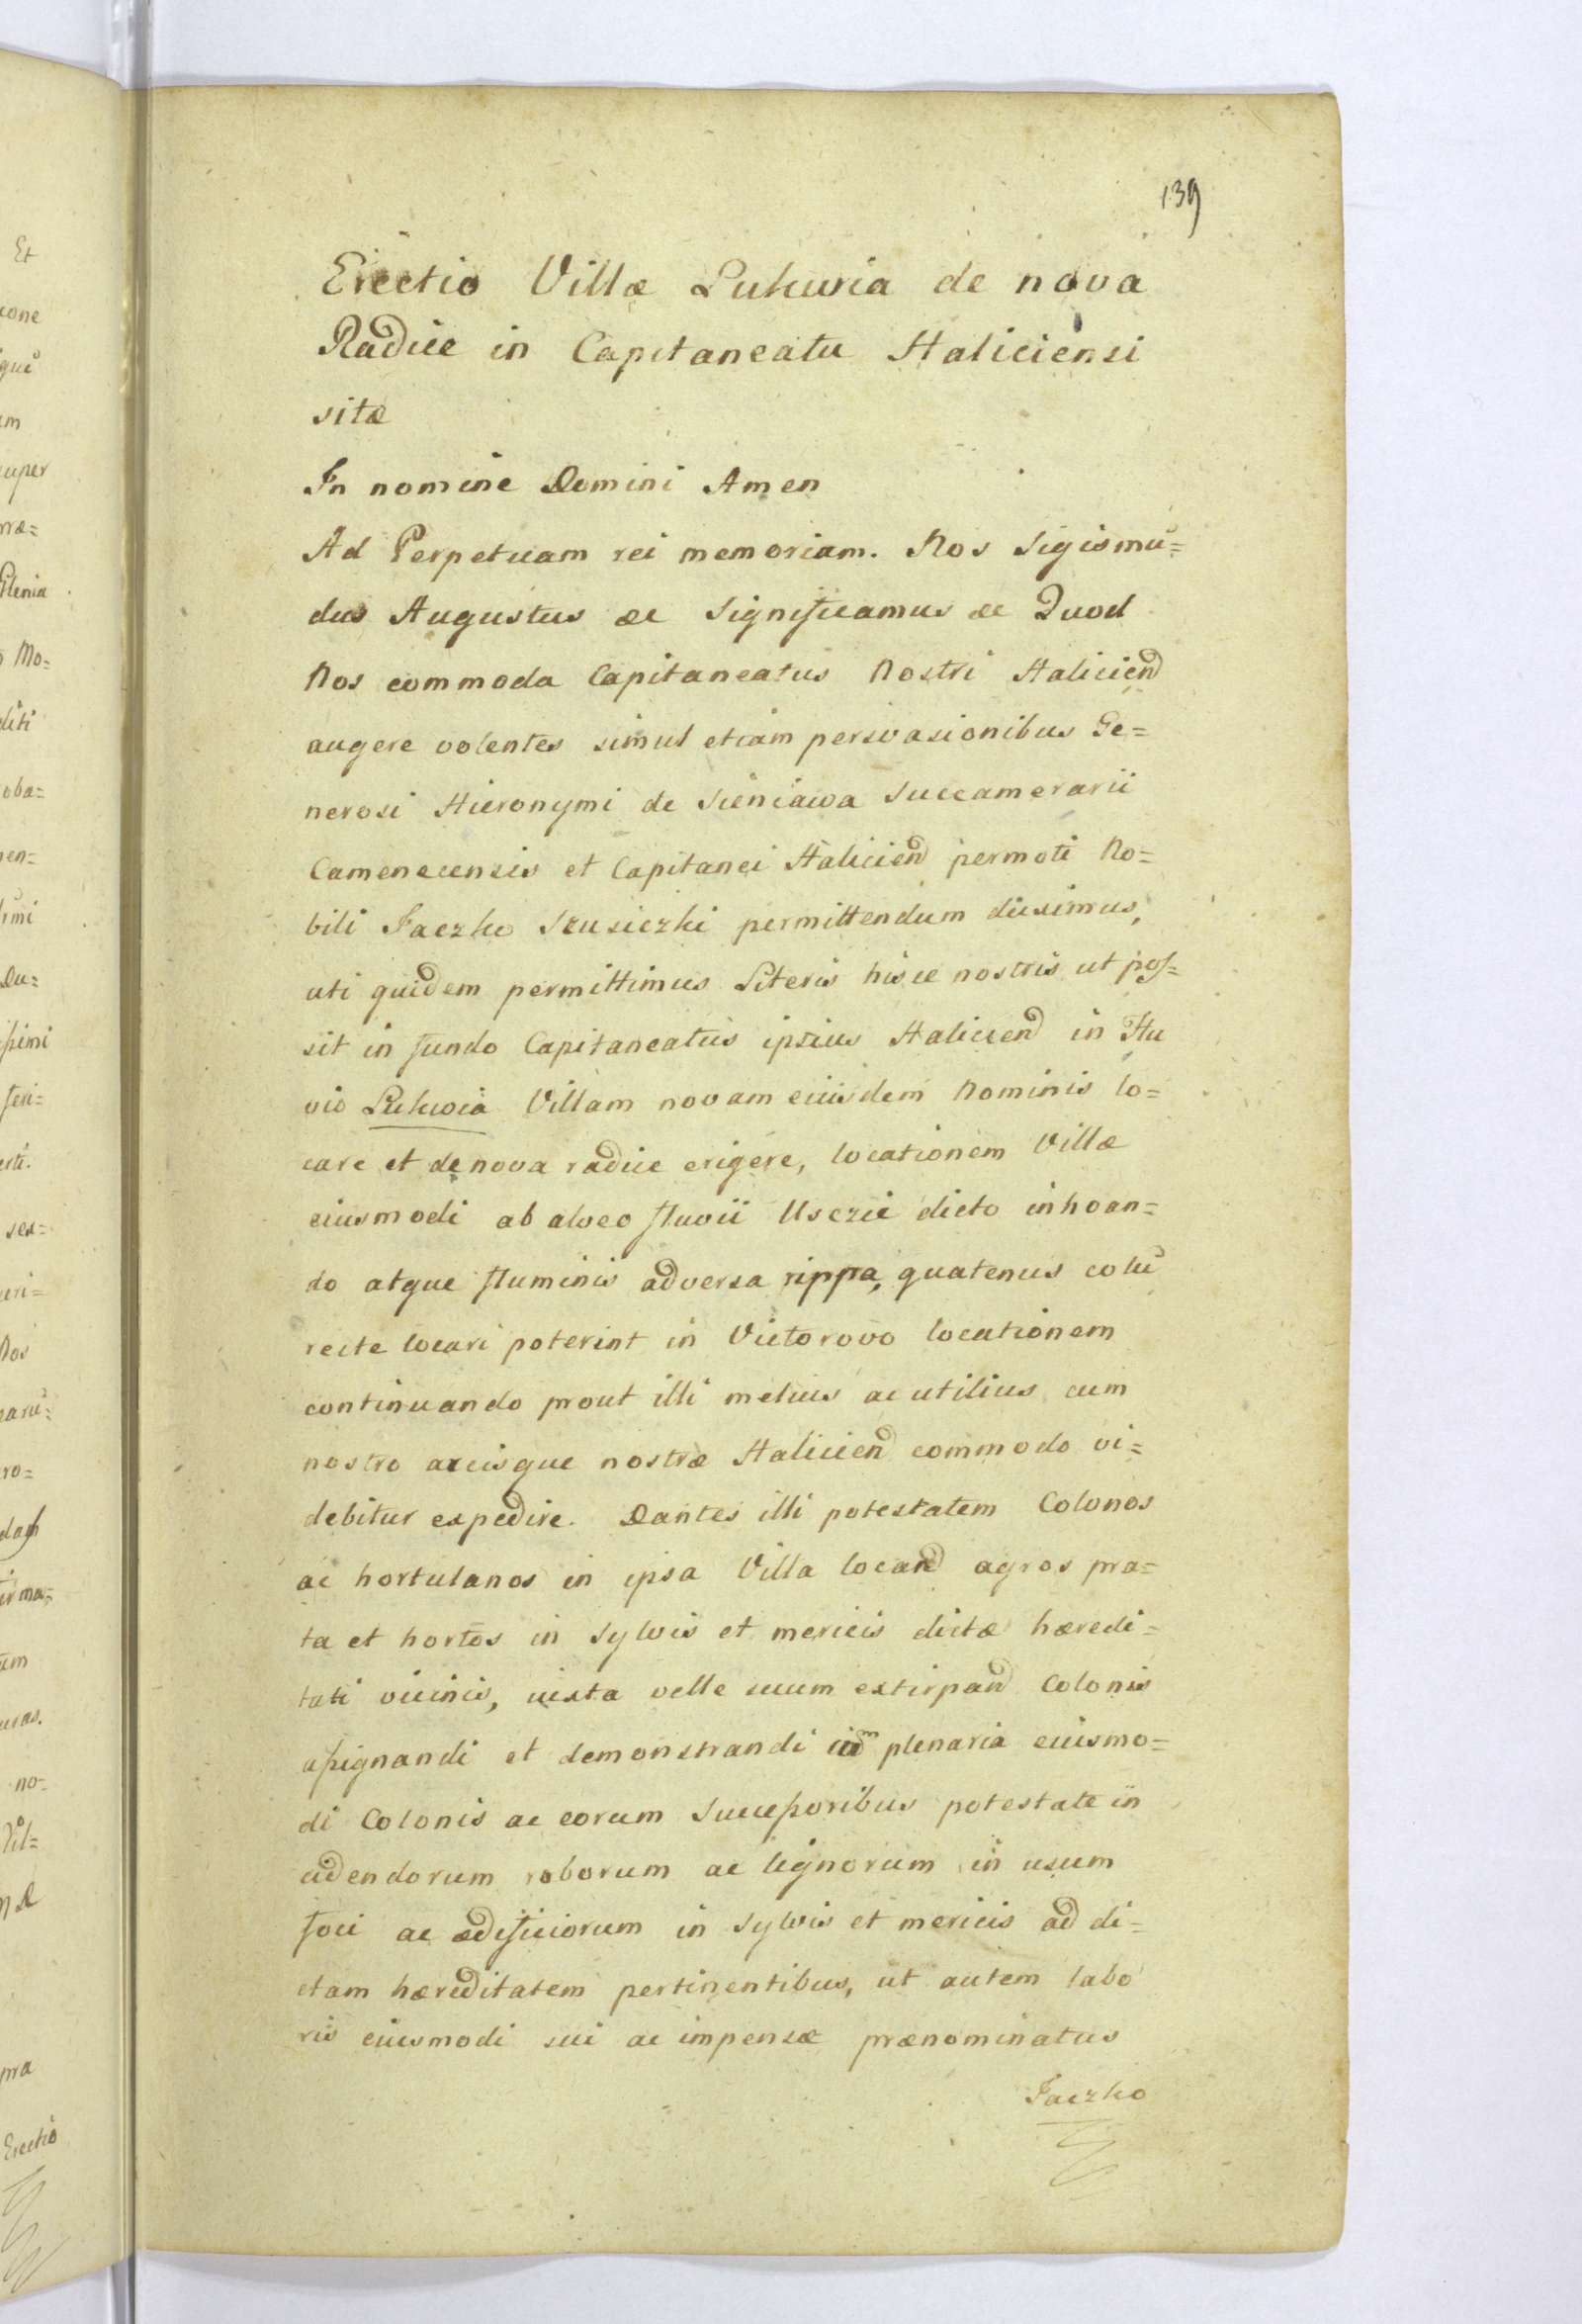 139
Erectio Villæ Lukwia de nova
Radice in Capitaneatu Haliciensi
sitæ
In nomine Domini Amen
Ad Perpetuam rei memoriam. Nos Sigismū=
dus Augustus &c Significamus &c Quod
Nos commoda Capitaneatus Nostri Halicien̄
augere volentes simul etiam persvasionibus Ge=
nerosi Hieronymi de Sieniawa Succamerarii
Camenecensis et Capitanei Halicien̄ permoti No=
bili Jaczko Szusiczki permittendum duximus,
uti quidem permittimus Literis hisce nostris ut pos=
sit in fundo Capitaneatus ipsius Halicien̄ in Flu
vio Lukwia Villam novam eiusdem Nominis lo=
care et de nova radice erigere, locationem Villæ
eiusmodi ab alveo fluvii Usczie dicto inhoan=
do atque fluminis adversa rippa, quatenus colū
recte locari poterint in Victorovo locationem
continuando prout illi melius ac utilius cum
nostro arcisque nostræ Halicien̄ commodo vi=
debitur expedire. Dantes illi potestatem Colonos
ac hortulanos in ipsa Villa locan̄ agros pra=
ta et hortos in Sylvis et mericis dictæ hæredi=
tati vicinis, iuxta velle suum extirpan̄ Colonis
assignandi et demonstrandi cum plenaria eiusmo=
di Colonis ac eorum Successoribus potestate in
cidendorum roborum ac lignorum in usum
foci ac ædificiorum in Sylvis et mericis ad di=
ctam hæreditatem pertinentibus, ut autem labo
ris eiusmodi sui ac impensæ prænominatus
Jaczko